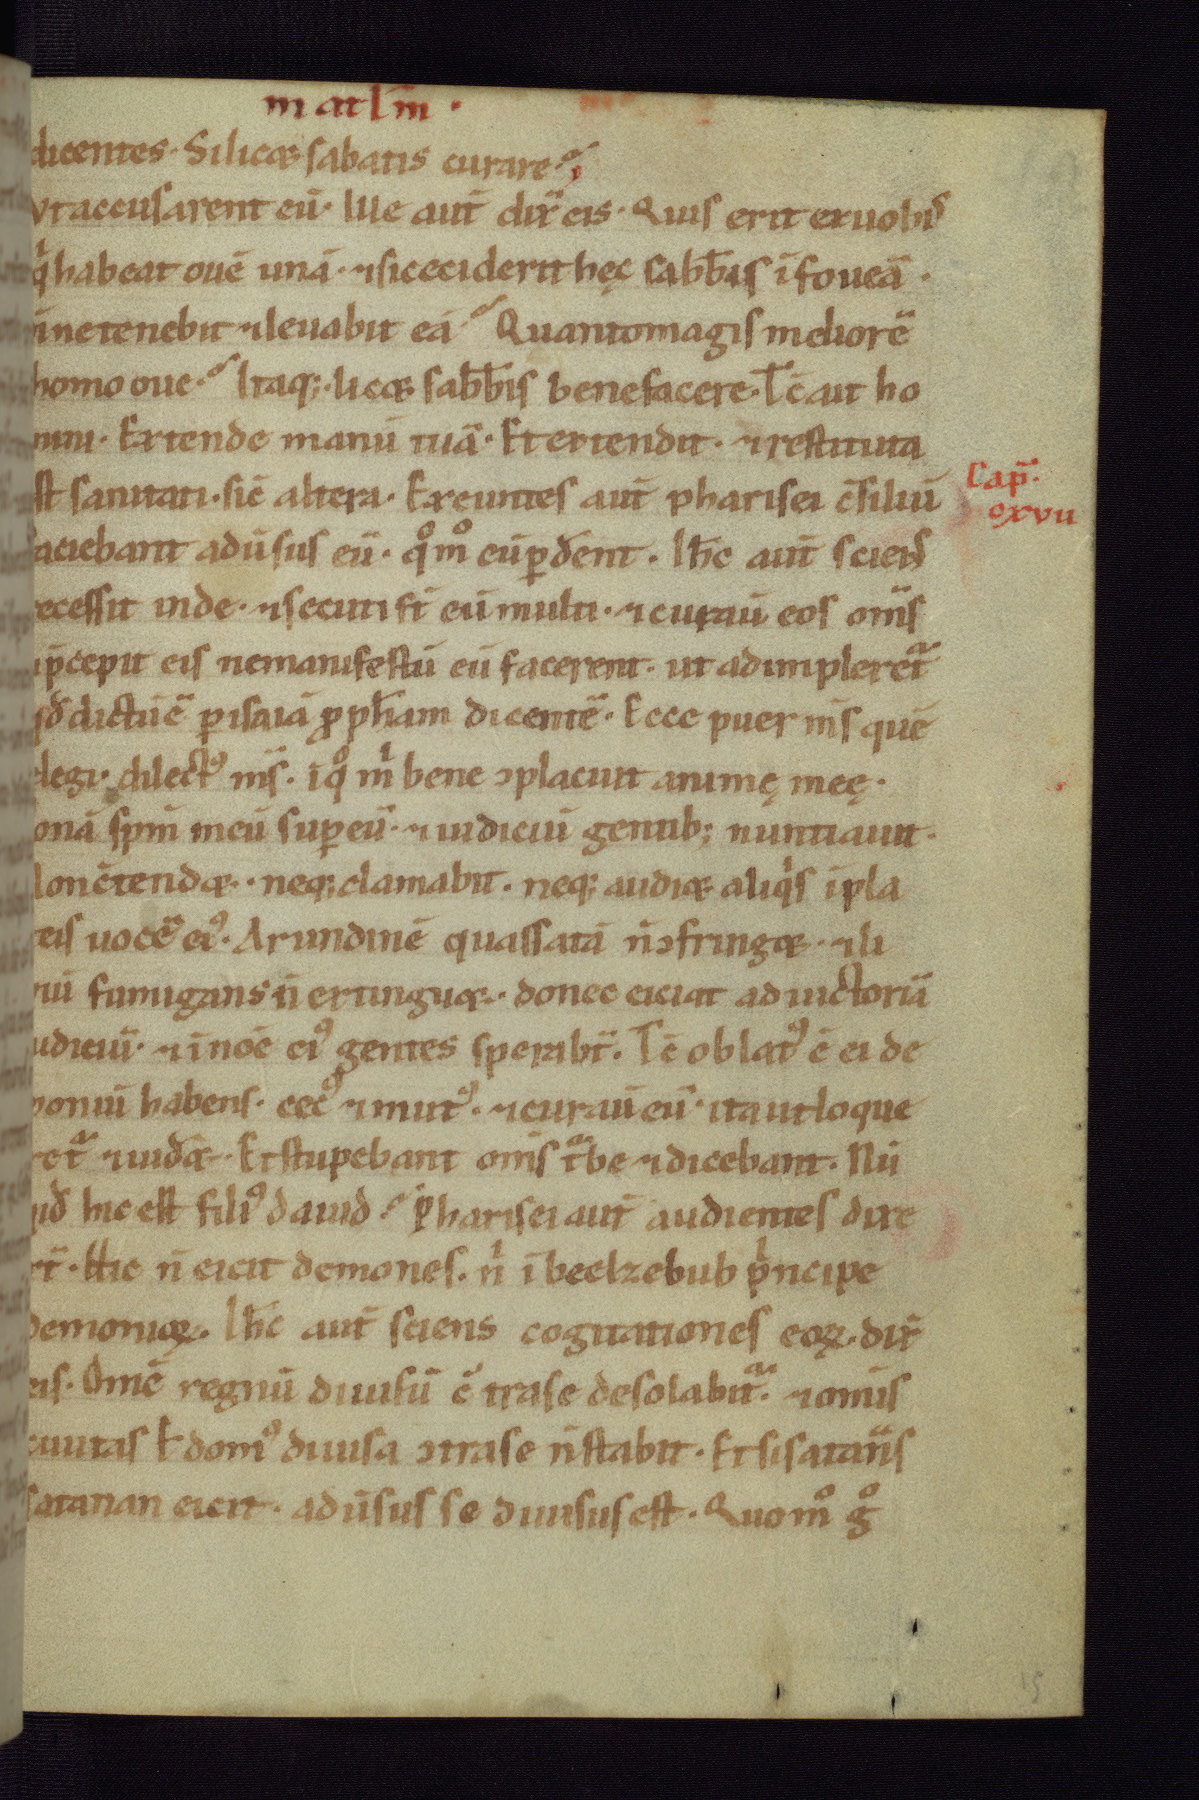 matłm̄ ·
dicentes · Si licet sabatis curare ·
vt accusarent eū · Ille aut̄ dix̄ eis · Quis erit ex uobis
q̇ habeat ouē unā · ⁊ si ceciderit hęc sabb̄is ī foueā ·
ne tenebit ⁊ leuabit eā · Quanto magis meliorē
homo oue · Itaq; licet sabb̄is benefacere · Tc̄ ait ho
mini · Extende manū tuā · Et extendit · ⁊ restituta
st sanitati · sic̄ altera · Exeuntes aut̄ pharisei c̄siliū
Cap̄ ·
oxvii
faciebant aduīsus eū · qͦmͦ eū ꝑdent · Ih̄c aut̄ sciens
ecessit inde · ⁊ secuti st̄ eū multi · ⁊ curaū eos om̄s
p̄cepit eis ne manifestū eū facerent · ut adimpleret̄
qd̄ dictū ē ꝑ isaiā ꝓph̄am dicentē · Ecce puer m̄s quē
elegi · dilectꝰ m̄s · ī qͦ m̄ bene ↄplacuit animę meę ·
onā sp̄m meū suꝑ eū · ⁊ iudiciū gentib; nuntiauit ·
on c̄tendet · neq; clamabit · neq; audiet aliq̇s ī pla
teis uocē eiꝰ · Arundinē quassatā n̄ ↄfringet · ⁊ li
nū fumigans n̄ extinguet · donec eiciat ad uictoriā
udiciū · ⁊ ī noē eiꝰ gentes speraƀt̄ · Tc̄ oblatꝰ ē ei de
moniū habens · cecꝰ ⁊ mutꝰ · ⁊ curaū eū · ita ut loque
ret̄ ⁊ uidet̄ · Et stupebant om̄s t̄be ⁊ dicebant · Nū
qd̄ hic est filiꝰ dauid · Pharisei aut̄ audientes dixe
rt̄ · Hic n̄ eicit demones · n̄ ī beelzebub p̄ncipe
demonioꝝ · Ih̄c aut̄ sciens cogitationes eoꝝ · dix̄
eis · Om̄e regnū diuisū c̄trase desolabit̄ · ⁊ omis
ciuitas ł domꝰ diuisa ↄtrase n̄ stabit · Et si satan̄s
satanan eicit · adūsus se diuisus est · Quomͦ gͦ
15